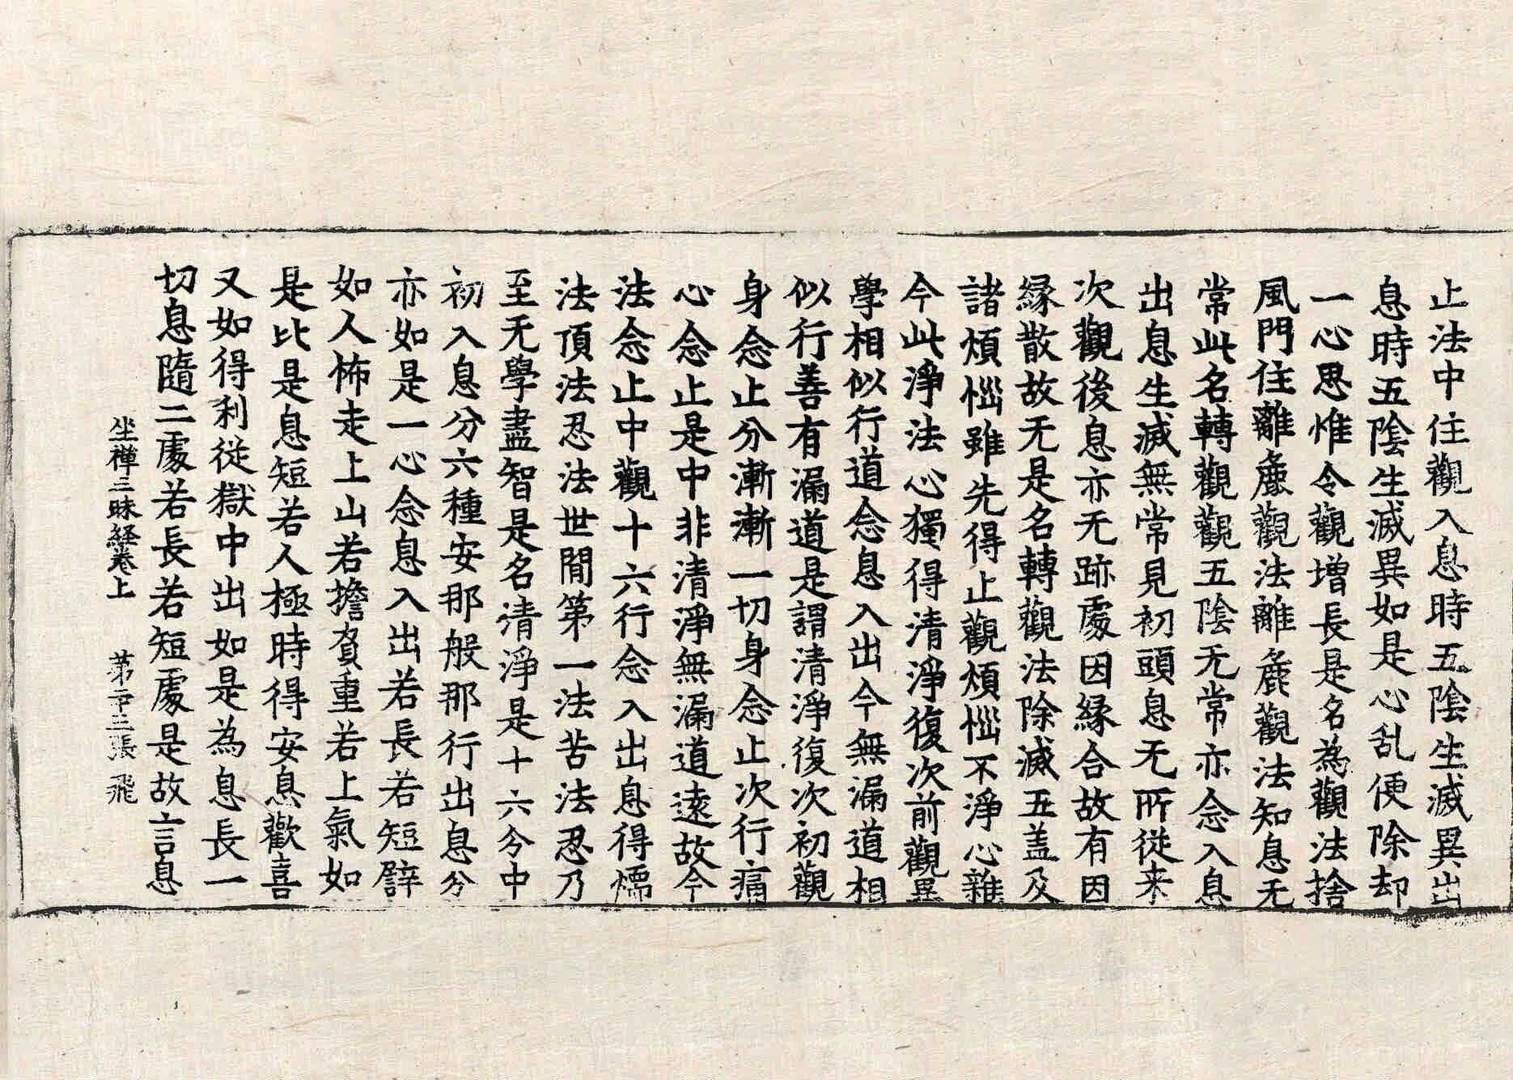 止法中住觀入息時五陰生滅異出
息時五陰生滅異如是心乱便除却
一心思惟令觀增長是名為觀法捨
風門住離麁觀法離麁觀法知息无
常此名轉觀觀五陰无常亦念入息
出息生滅無常見初頭息无所從来
次觀後息亦无跡處因縁合故有因
縁散故无是名轉觀法除滅五盖及
諸煩惱雖先得止觀煩惱不淨心雜
今此淨法心獨得清淨復次前觀異
學相似行道念息入出今無漏道相
似行善有漏道是謂清淨復次初觀
身念止分漸漸一切身念止次行痛
心念止是中非清淨無漏道遠故今
法念止中觀十六行念入出息得煗
法頂法忍法世間第一法苦法忍乃
至无學盡智是名清淨是十六分中
初入息分六種安那般那行出息分
亦如是一心念息入出若長若短譬
如人怖走上山若擔負重若上氣如
是比是息短若人極時得安息歡喜
又如得利從獄中出如是為息長一
切息隨二處若長若短處是故言息
坐禪三昧経卷上 第二十三張 飛